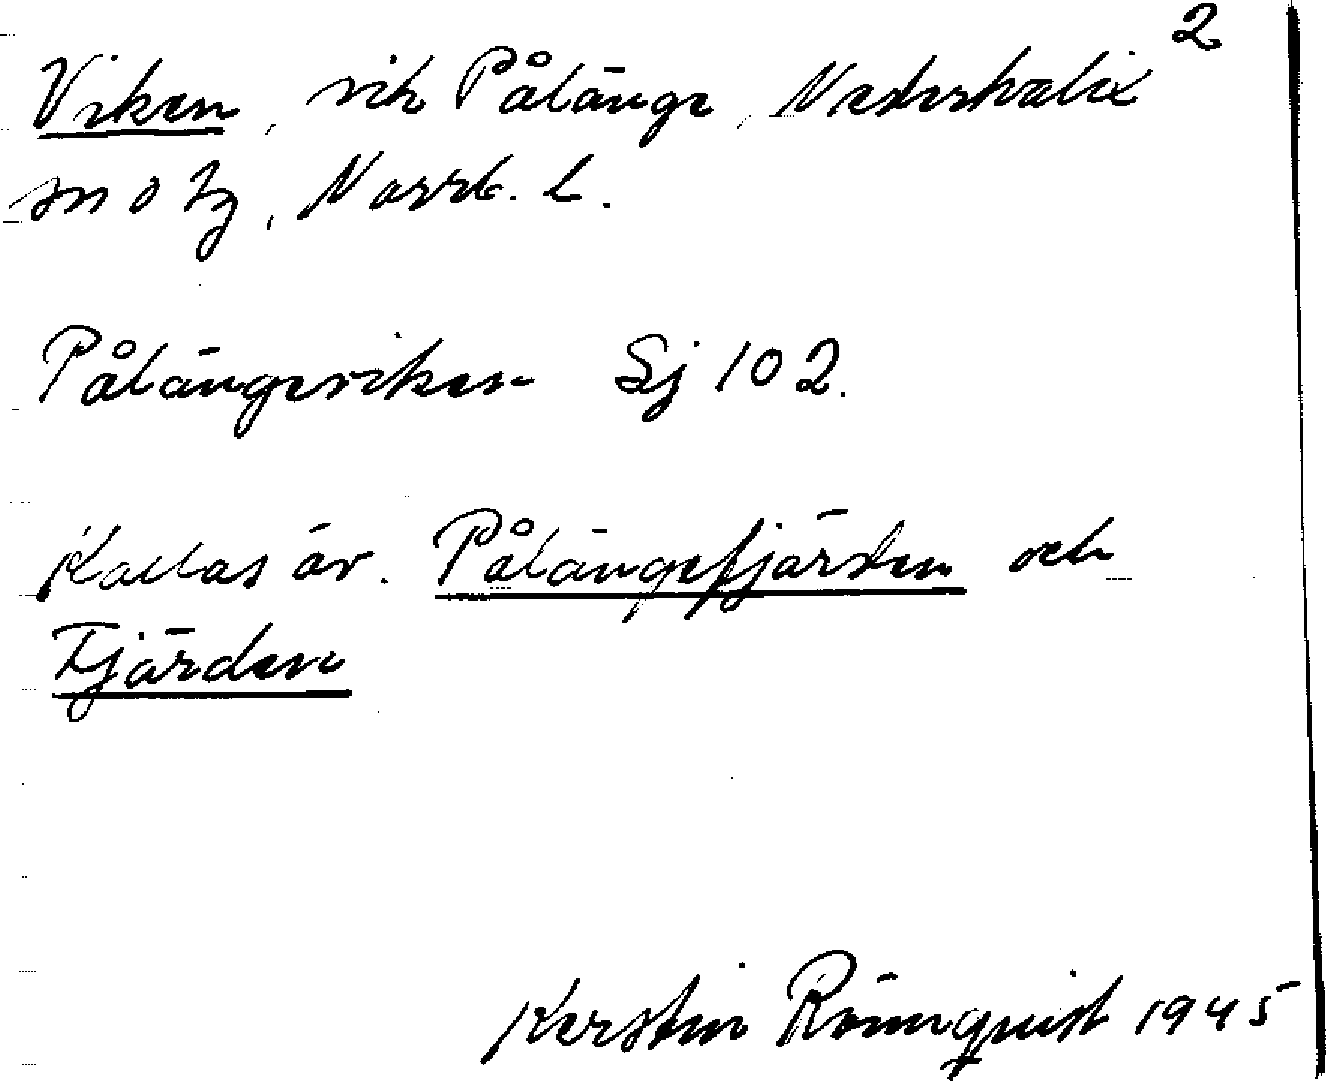 2
Viken, vik Pålänge, Nederkalix
sn o tg, Norrb. l.
Pålängeviken Sj 102.
Kallas äv. Pålängefjärden och
Fjärden
Kerstin Rönnquist 1945